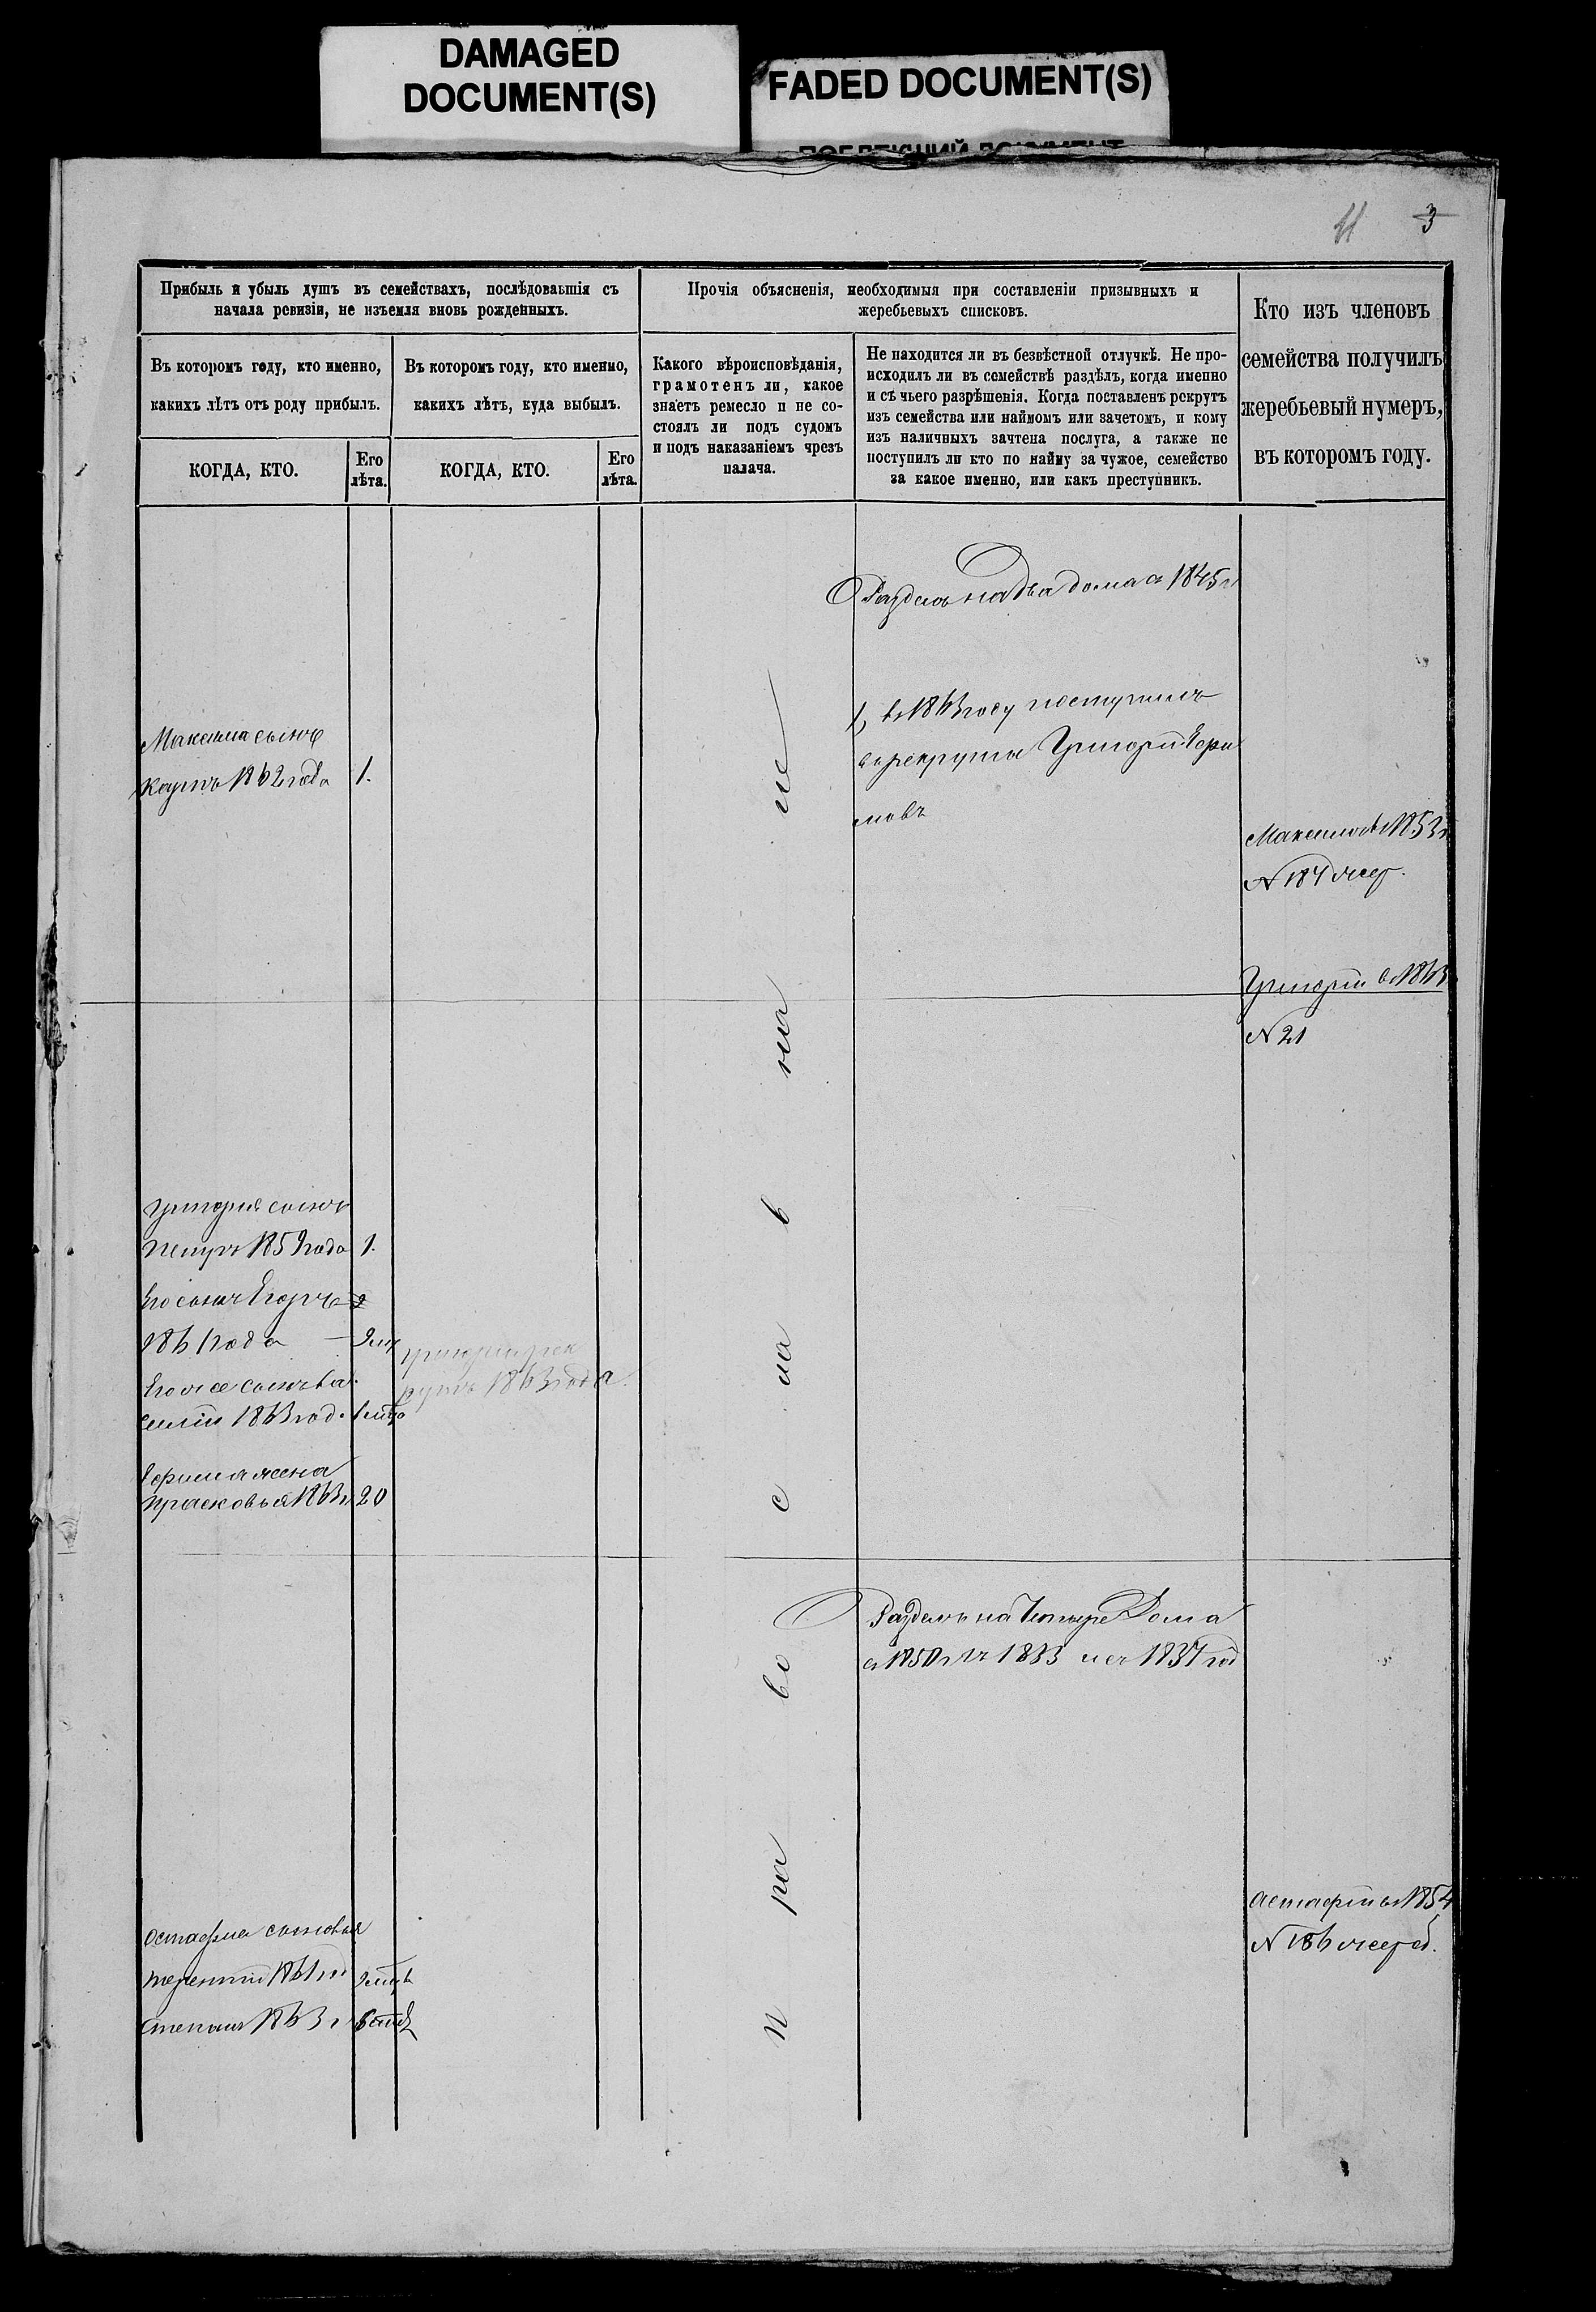 DAMAGED
DOCUMENT(S)
FADED DOCUMENT(S)
3
Прибыль и убыль душъ въ семействахъ, послѣдовавшія съ
начала ревизіи, не изъемля вновь рожденныхъ.
Въ которомъ году, кто именно,
какихъ лѣтъ отъ роду прибылъ.
КОГДА, КТО.
Его
лѣта.
Въ которомъ году, кто именно,
какихъ лѣтъ, куда выбылъ.
КОГДА, КТО.
Его
лѣта.
Прочія объясненія, необходимыя при составленіи призывныхъ и
жеребьевыхъ списковъ.
Какого вѣроисповѣданія,
грамотенъ ли, какое
знаетъ ремесло и не со-
стоялъ ли подъ судомъ
и подъ наказаніемъ чрезъ
палача.
Не находится ли въ безвѣстной отлучкѣ. Не про-
исходилъ ли въ семействѣ раздѣлъ, когда именно
и съ чьего разрѣшенія. Когда поставленъ рекрутъ
изъ семейства или наймомъ или зачетомъ, и кому
изъ наличныхъ зачтена послуга, а также не
поступилъ ли кто по найму за чужое, семейство
за какое именно, или какъ преступникъ.
Кто изъ членовъ
семейства получилъ
жеребьевый нумеръ,
въ которомъ году.
Раздел на два дома с 1845 г
Максима сынъ
Карпъ 1862 года 1.
1, в 1863 году поступилъ
в рекруты Григорій Ефи
мовъ
Максимъ в 1853 г
N 184 жер.
Григорій в 1863
N 21
Григорія сынъ
Петръ 1859 года 1.
Его сынъ Егоръ 2
1861 года
Его же сынъ Ва
силій 1863 год.
Григорій рек
рутъ 1863 года.
Ефима жена
Прасковья 1863 г 20
Раздел на Четыре Дома
с 1850 г 1833 и с 1837 год
Остафия сыновья
Терентій 1861 го
Степанъ 1863 г
Астафій в 1854
N 186 жереб.
п ра во с ла в на ие